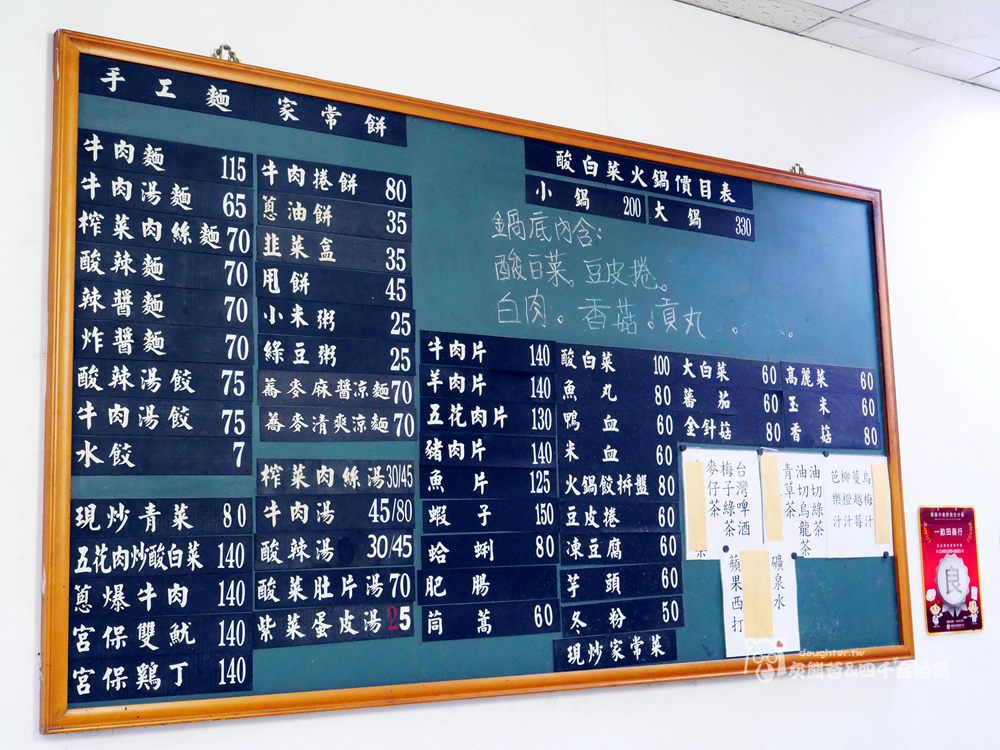 手工麵
牛肉麵 115
牛肉湯麵 65
榨菜肉絲麵 70
酸辣麵 70
辣醬麵 70
炸醬麵 70
酸辣湯餃 75
牛肉湯餃 75
水餃 7
現炒青菜 80
五花肉炒酸白菜 140
蔥爆牛肉 140
宮保雙魷 140
宮保鷄丁 140
家常餅
牛肉捲餅 80
蔥油餅 35
韭菜盒 35
甩餅 45
小米粥 25
綠豆粥 25
蕎麥麻醬涼麵 70
蕎麥清爽涼麵 70
榨菜肉絲湯 30/45
牛肉湯 45/80
酸辣湯 30/45
酸菜肚片湯 70
紫菜蛋皮湯 25
酸白菜火鍋價目表
小鍋 200 大鍋 330
鍋底內含:
酸白菜。豆皮捲。
白肉。香菇。貢丸
牛肉片 140
羊肉片 140
五花肉片 130
豬肉片 140
魚片 125
蝦子 150
蛤蜊 80
肥腸
茼蒿 60
酸白菜 100
魚丸 80
鴨血 60
米血 60
火鍋餃拼盤 80
豆皮捲 60
凍豆腐 60
芋頭 60
冬粉 50
現炒家常菜
大白菜 60
蕃茄 60
金針菇 80
高麗菜 60
玉米 60
香菇 80
台灣啤酒
梅子綠茶
麥仔茶
油切綠茶
油切烏龍茶
青草茶
烏梅汁
蔓越莓汁
柳橙汁
芭樂汁
蘋果西打
礦泉水
一畝田商行
良
daughter.tw